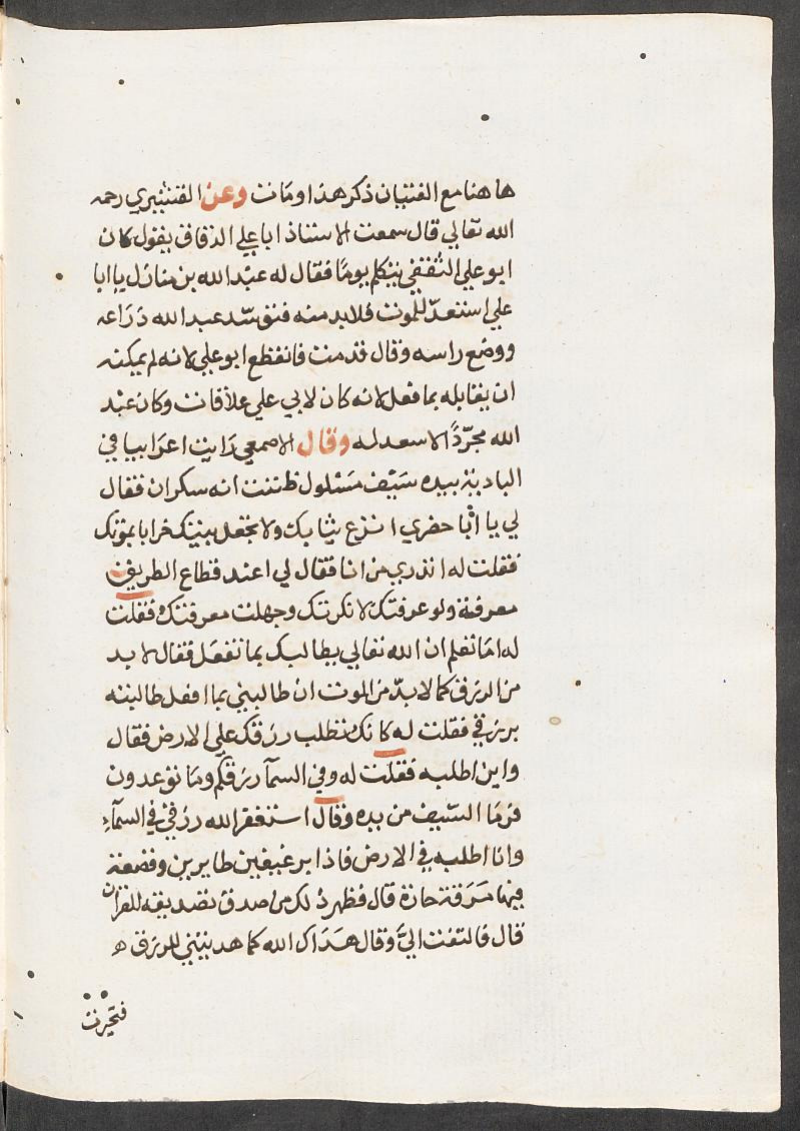 ها هنا مع الفتيان ذكر هذا ومات وعن القشيري رحمه
الله تعالي قال سمعت الاستاذ ابا علي الدقاق يقول كان
ابو علي الثقفي يتكلم يوما فقال له عبد الله بن منازل يا ابا
علي استعدّ للموت فلا بد منه فتوسّد عبد الله ذراعه
ووضع راسه وقال قد مت فانقطع ابو علي لانه لم يمكنه
ان يقابله بما فعل لانه كان لابي علي علاقات وكان عبد
الله مجرّدًا لا سعد له وقال الاصمعي رايت اعرابيا في
البادية بيده سيف مسلول ظننت انه سكران فقال
لي يا حضري انزع ثيابك ولا تجعل بيتك خرابا بموتك
فقلت له اتدري من انا فقال لي اعند قطاع الطريق
معرفة ولو عرفتك لانكرتك وجهلت معرفتك فقلت
له اما تعلم ان الله تعالي يطالبك بما تفعل فقال لا بد
من الرزق كما لا بدّ من الموت ان طالبني بما افعل طالبته
برزقي فقلت له كانك تطلب رزقك علي الارض فقال
واين اطلبه فقلت له وفي السمآ رزقكم وما توعدون
فرما السّيف من يده وقال استغفر الله رزقي في السمآء
وانا اطلبه في الارض فاذا برغيفين طايرين وقصعة
فيها مرقة حارة قال فظهر ذلك من صدق تصديقه للقران
قال فالتفت اليَّ وقال هداك الله كما هديتني للرزق ه
فتحيرت